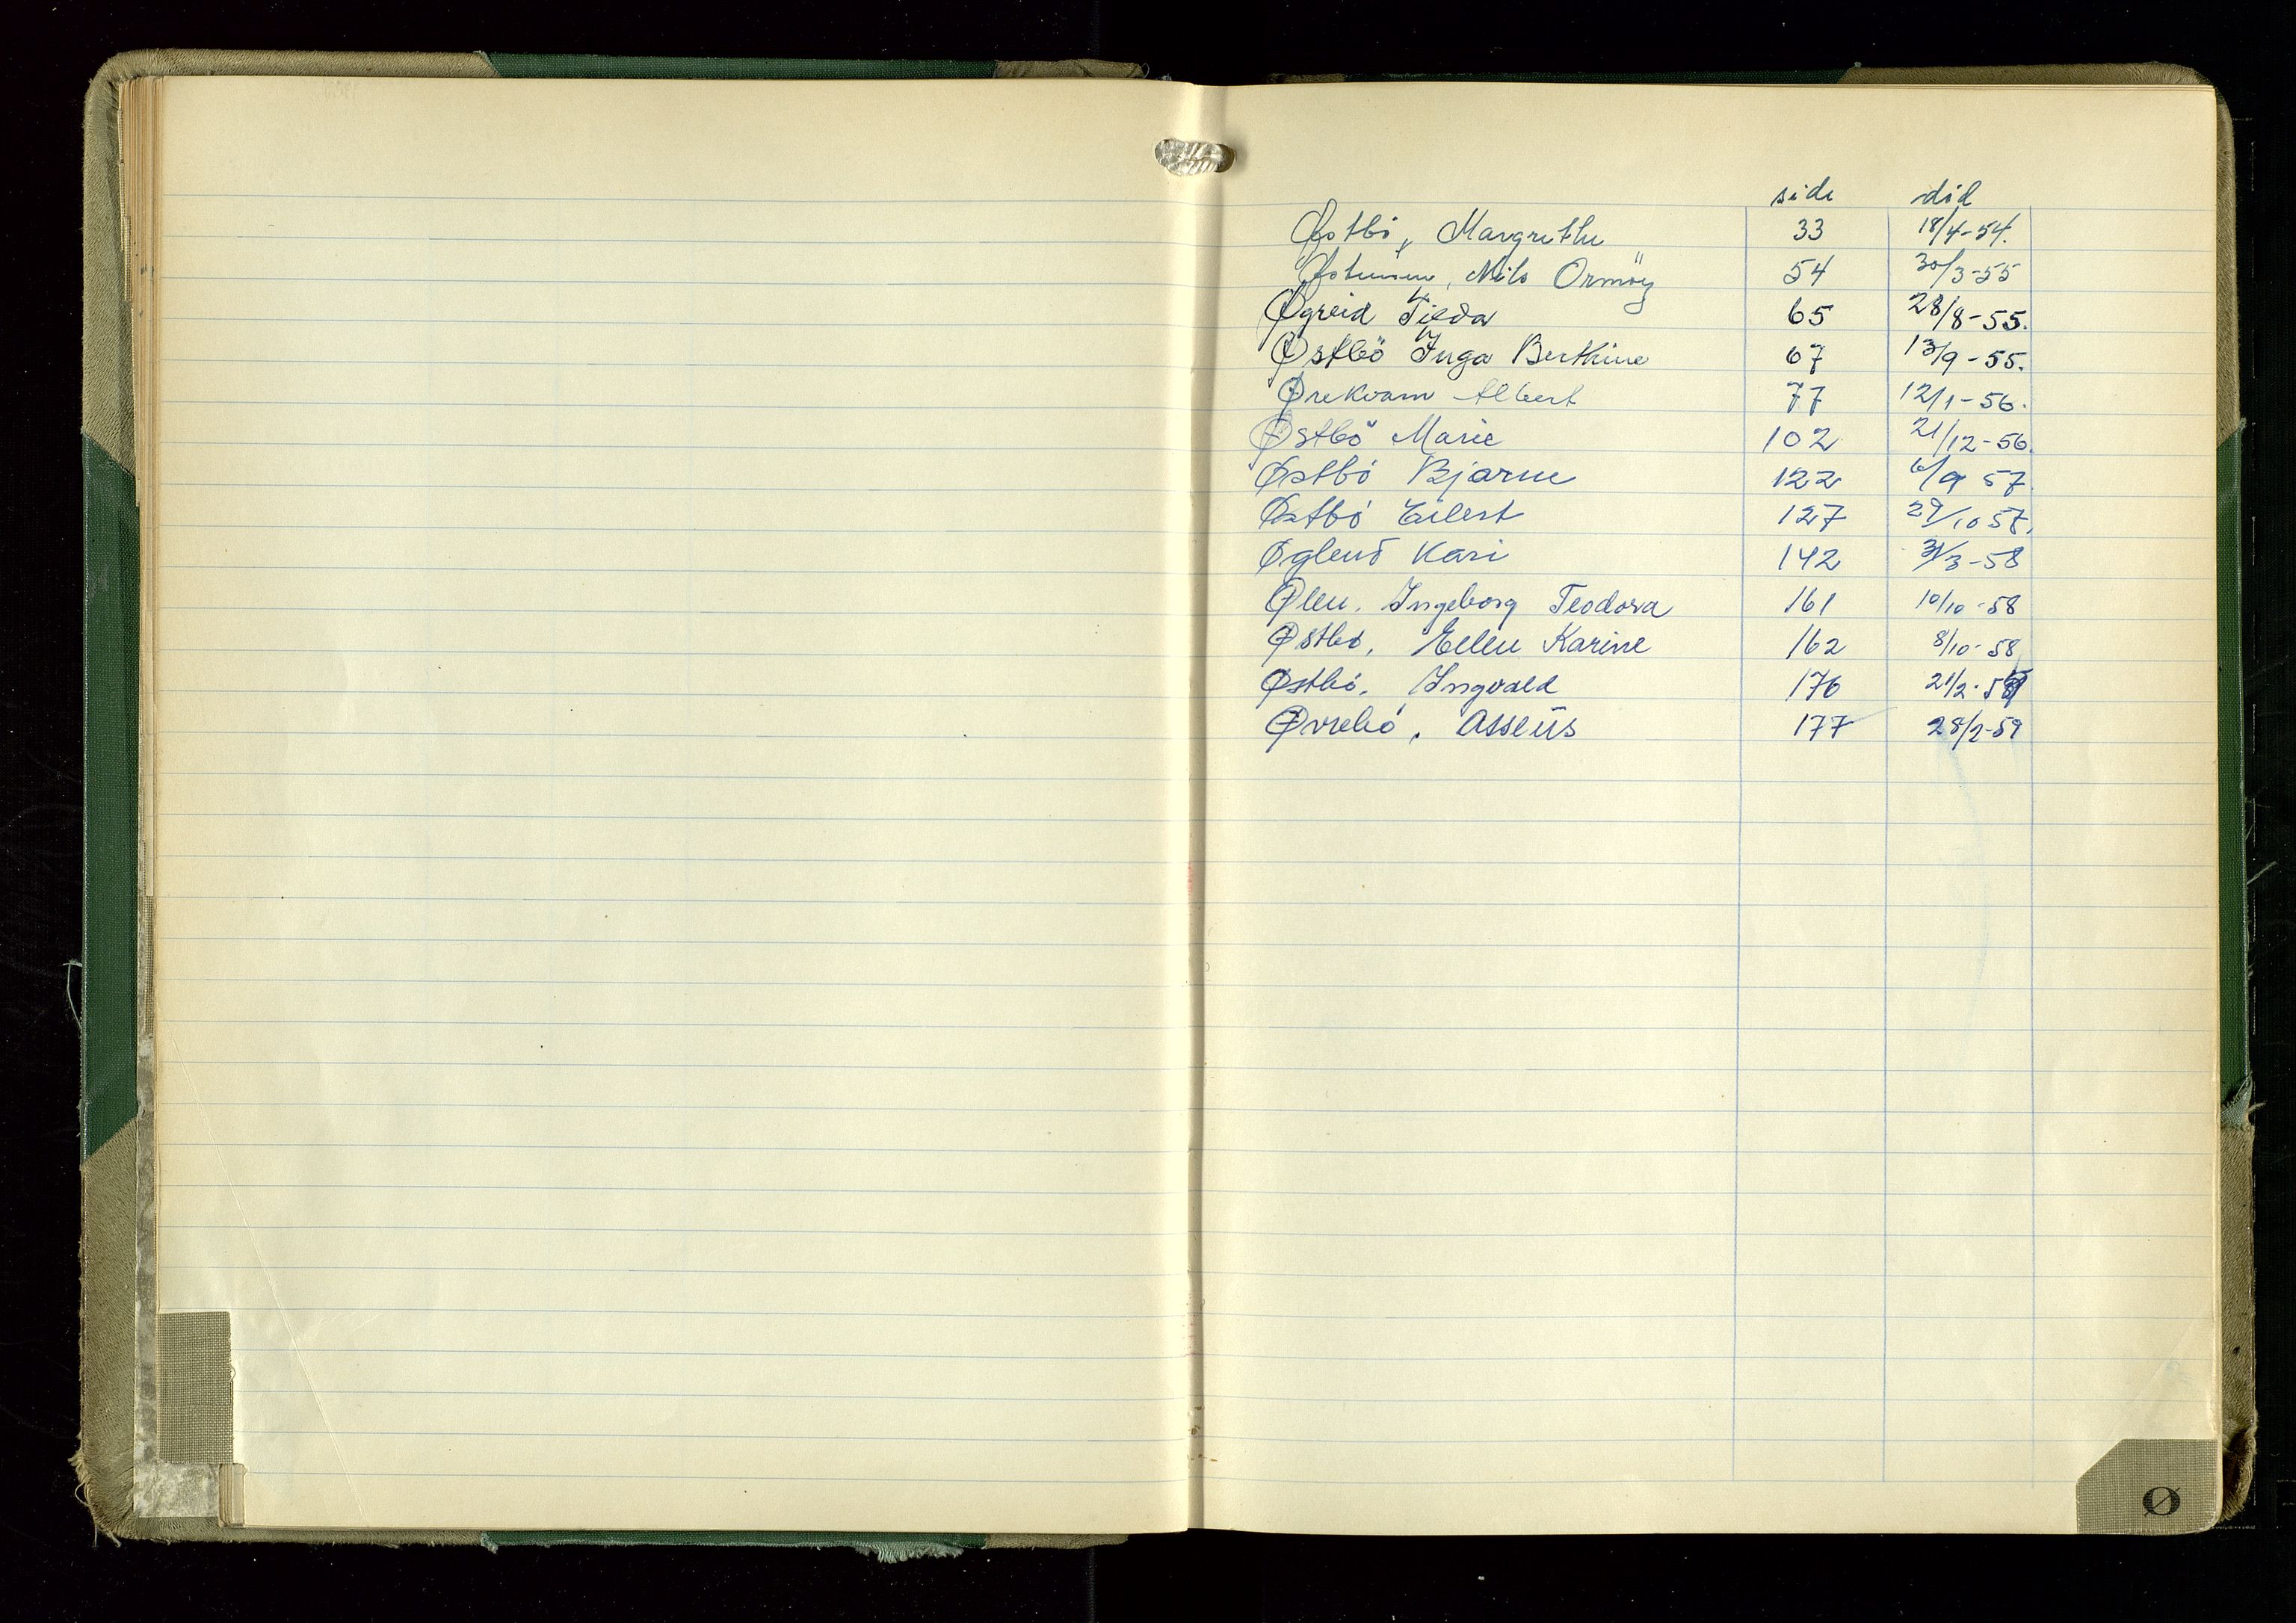 side død
Østbö, Margrethe 33 18/4-54.
Nils Ormøy 54 30/3-55
Øgreid Tilda 65 28/8-55.
Østbö Inga Berthine 67 13/9-55.
Ørekvam Albert 77 12/1-56.
Østbö Marie 102 21/12-56.
Østbö Bjarne 122 6/9 57.
Østbö Eilert 127 29/10 57.
Øglend Kari 142 31/3-58
Ølen. Ingeborg Teodora 161 10/10-58
Østbö. Ellen Karine 162 8/10-58
Østbö. Ingvald 176 21/2-59
Øvrebö. Asseüs 177 28/2-59
Ø